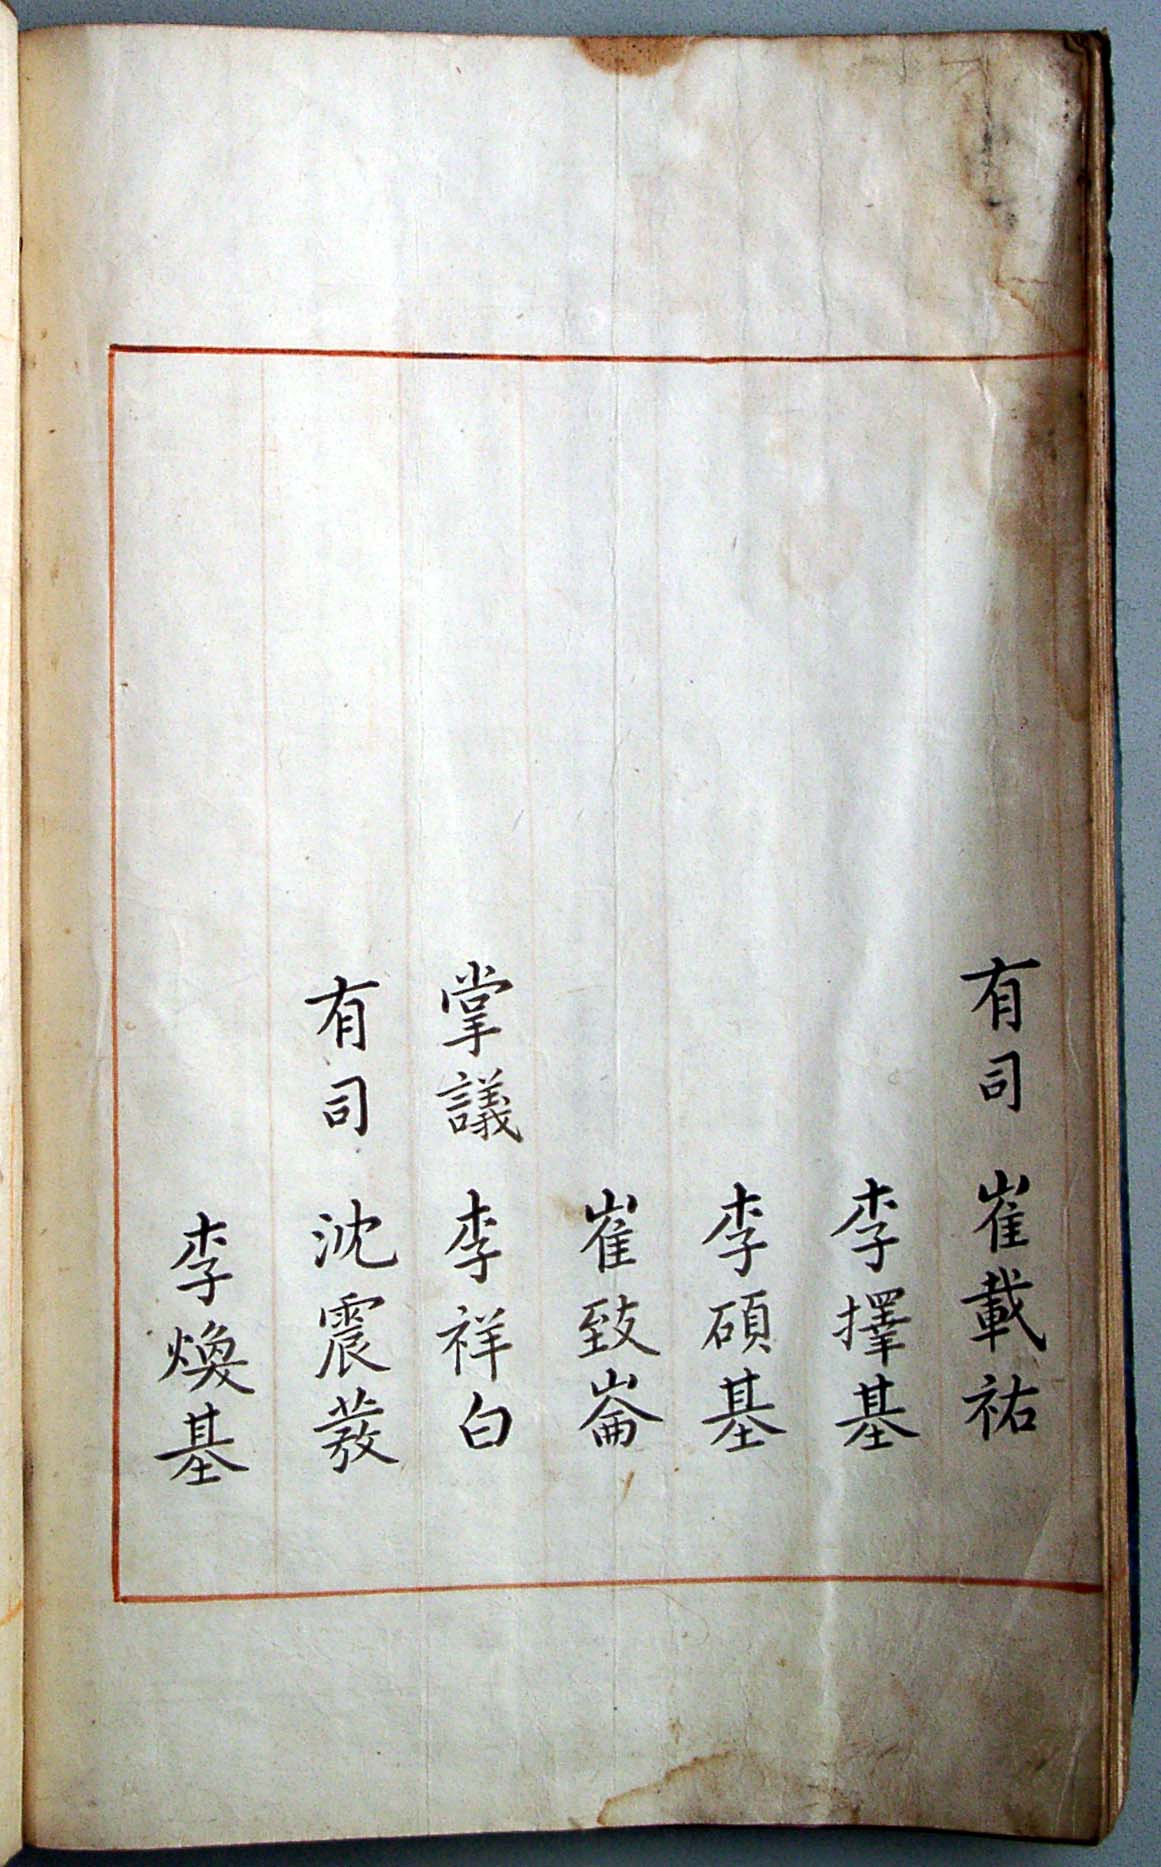 有司 崔載祐
李擇基
李碩基
崔致崙
掌議 李祥白
有司 沈震蕟
李煥基